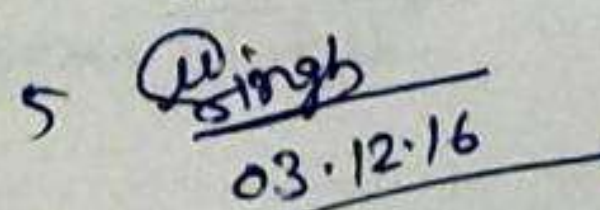 5 Singh
03.12.16